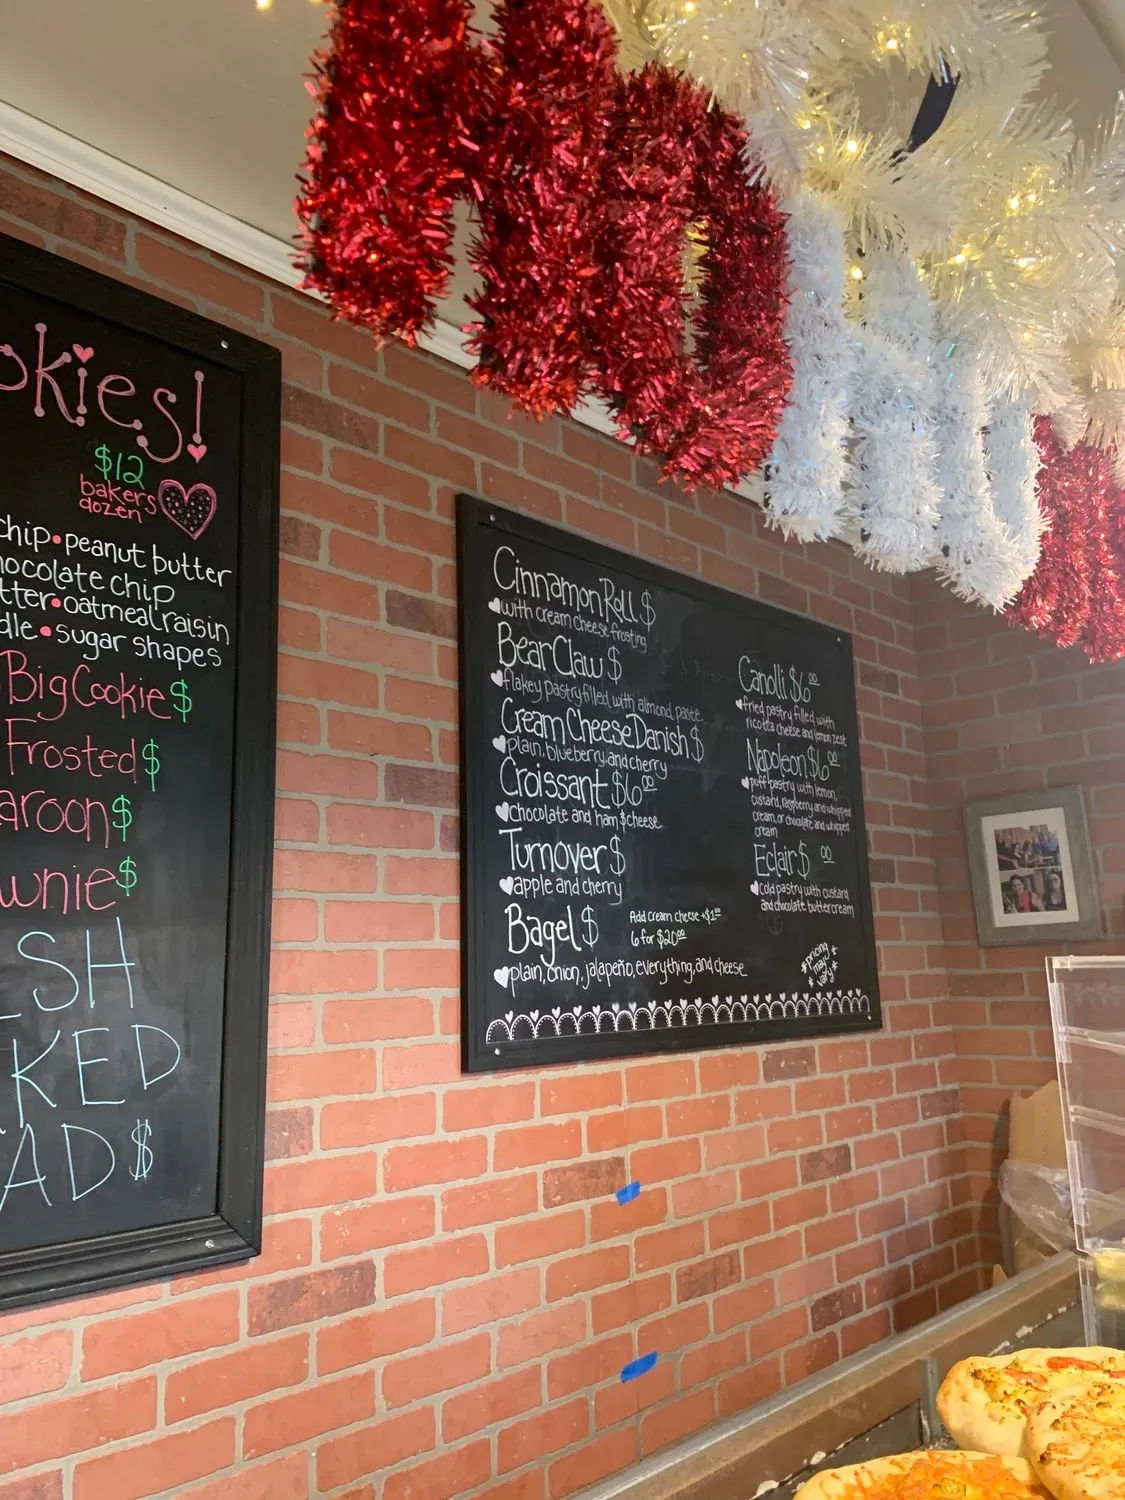 okies!
$12
bakers
dozen
chip•peanut butter
hocolate chip
tter•oatmeal raisin
dle•sugar shapes
Big Cookie $
Frosted $
aroon $
wnie $
SH
KED
AD $
Cinnamon Roll $
with cream cheese frosting
Bear Claw $
flakey pastry filled with almond paste
Cream Cheese Danish $
plain, blueberry, and cherry
Croissant $6.00
chocolate and ham & cheese
Turnover $
apple and cherry
Bagel $
Add cream cheese +$1.00
6 for $20.00
plain, onion, jalapeño, everything, and cheese
Canolli $6.00
fried pastry filled with
ricotta cheese and lemon zest
Napoleon $6.00
puff pastry with lemon
custard, raspberry and whipped
cream, or chocolate and whipped
cream
Eclair $ 00
cold pastry with custard
and chocolate buttercream
*pricing*
may
*vary*